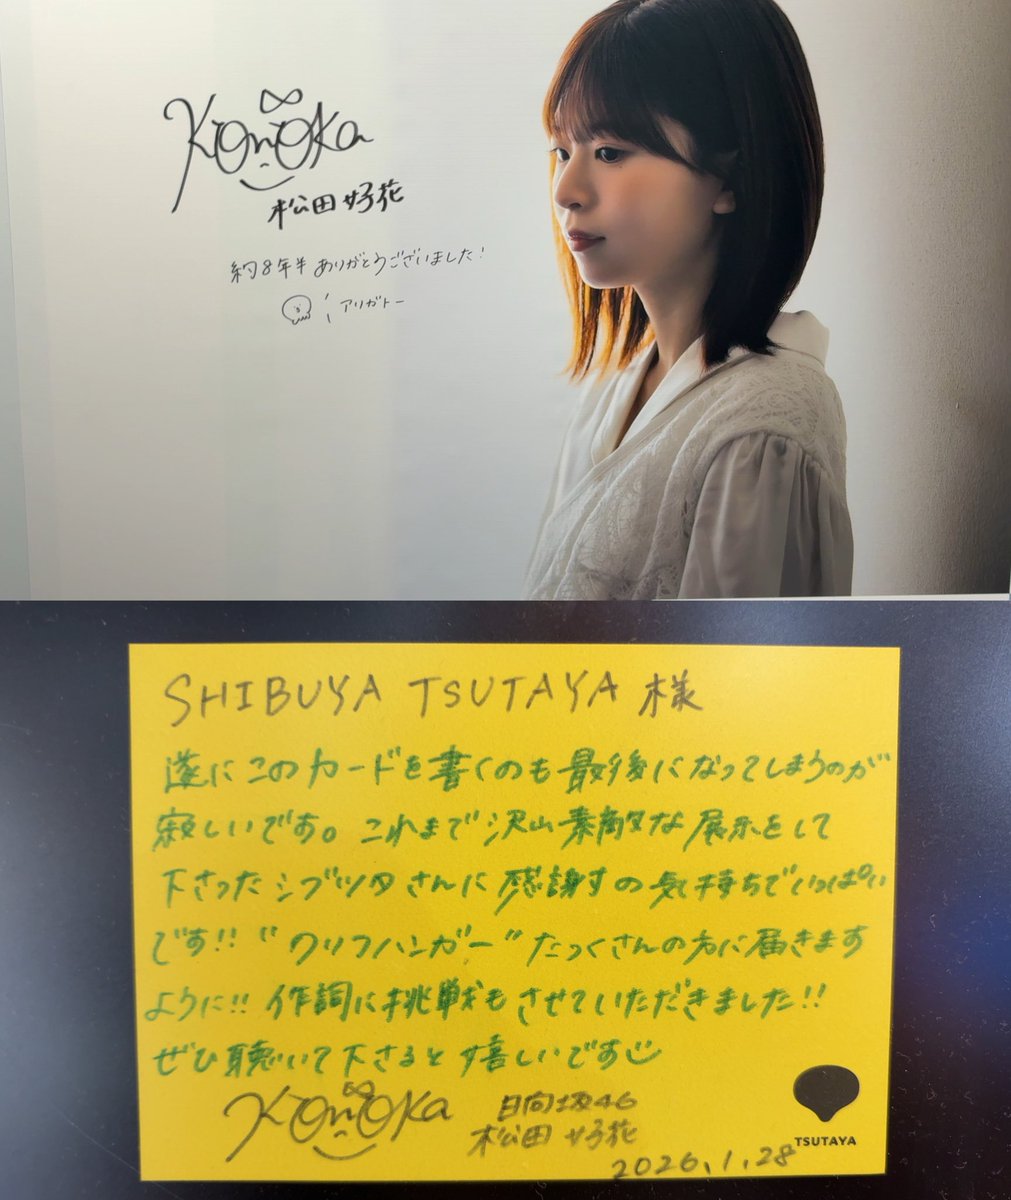 Konoka
松田好花
約8年半ありがとうございました!
アリガトー
SHIBUYA TSUTAYA 様
遂にこのカードを書くのも最後になってしまうのが
寂しいです。これまで沢山素敵な展示をして
下さったシブツタさんに感謝の気持ちでいっぱい
です!! "クリフハンガー" たっくさんの方に届きます
ように!! 作詞に挑戦もさせていただきました!!
ぜひ聴いて下さると嬉しいです
Konoka
日向坂46
松田好花
2026.1.28
TSUTAYA